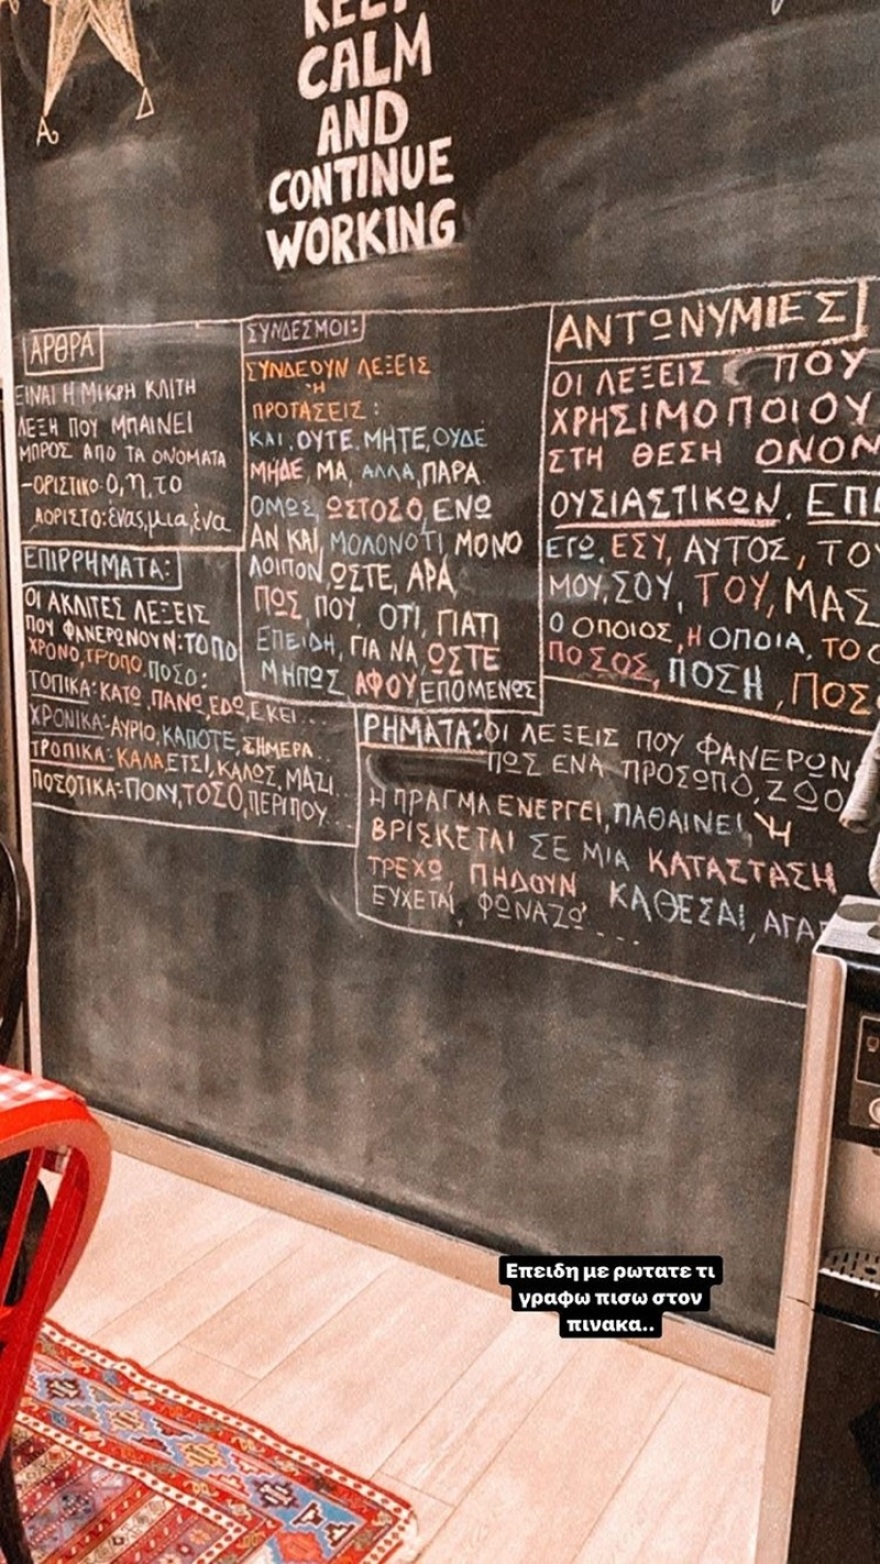 KEEP
CALM
AND
CONTINUE
WORKING
ΑΡΘΡΑ
ΕΙΝΑΙ Η ΜΙΚΡΗ ΚΛΙΤΗ
ΛΕΞΗ ΠΟΥ ΜΠΑΙΝΕΙ
ΜΠΡΟΣ ΑΠΟ ΤΑ ΟΝΟΜΑΤΑ
-ΟΡΙΣΤΙΚΟ: Ο, η, το
ΑΟΡΙΣΤΟ: ένας, μια, ένα
ΕΠΙΡΡΗΜΑΤΑ:
ΟΙ ΑΚΛΙΤΕΣ ΛΕΞΕΙΣ
ΠΟΥ ΦΑΝΕΡΩΝΟΥΝ: ΤΟΠΟ
ΧΡΟΝΟ, ΤΡΟΠΟ, ΠΟΣΟ:
ΤΟΠΙΚΑ: ΚΑΤΩ, ΠΑΝΩ, ΕΔΩ, ΕΚΕΙ...
ΧΡΟΝΙΚΑ: ΑΥΡΙΟ, ΚΑΠΟΤΕ, ΣΗΜΕΡΑ..
ΤΡΟΠΙΚΑ: ΚΑΛΑ, ΕΤΣΙ, ΚΑΛΩΣ, ΜΑΖΙ..
ΠΟΣΟΤΙΚΑ: ΠΟΛΥ, ΤΟΣΟ, ΠΕΡΙΠΟΥ...
ΣΥΝΔΕΣΜΟΙ:
ΣΥΝΔΕΟΥΝ ΛΕΞΕΙΣ
Ή
ΠΡΟΤΑΣΕΙΣ:
ΚΑΙ, ΟΥΤΕ, ΜΗΤΕ, ΟΥΔΕ
ΜΗΔΕ, ΜΑ, ΑΛΛΑ, ΠΑΡΑ
ΟΜΩΣ, ΩΣΤΟΣΟ, ΕΝΩ
ΑΝ ΚΑΙ, ΜΟΛΟΝΟΤΙ, ΜΟΝΟ
ΛΟΙΠΟΝ, ΩΣΤΕ, ΑΡΑ,
ΠΩΣ, ΠΟΥ, ΟΤΙ, ΓΙΑΤΙ
ΕΠΕΙΔΗ, ΓΙΑ ΝΑ, ΩΣΤΕ
ΜΗΠΩΣ, ΑΦΟΥ, ΕΠΟΜΕΝΩΣ
ΑΝΤΩΝΥΜΙΕΣ
ΟΙ ΛΕΞΕΙΣ ΠΟΥ
ΧΡΗΣΙΜΟΠΟΙΟΥ
ΣΤΗ ΘΕΣΗ ΟΝΟΜ
ΟΥΣΙΑΣΤΙΚΩΝ, ΕΠΙ
ΕΓΩ, ΕΣΥ, ΑΥΤΟΣ, ΤΟΥ
ΜΟΥ, ΣΟΥ, ΤΟΥ, ΜΑΣ
Ο ΟΠΟΙΟΣ, Η ΟΠΟΙΑ, ΤΟ Ο
ΠΟΣΟΣ, ΠΟΣΗ, ΠΟΣ
ΡΗΜΑΤΑ: ΟΙ ΛΕΞΕΙΣ ΠΟΥ ΦΑΝΕΡΩΝ
ΠΩΣ ΕΝΑ ΠΡΟΣΩΠΟ, ΖΩΟ
Η ΠΡΑΓΜΑ ΕΝΕΡΓΕΙ, ΠΑΘΑΙΝΕΙ Ή
ΒΡΙΣΚΕΤΑΙ ΣΕ ΜΙΑ ΚΑΤΑΣΤΑΣΗ
ΤΡΕΧΩ ΠΗΔΟΥΝ ΚΑΘΕΣΑΙ, ΑΓΑΠ
ΕΥΧΕΤΑΙ, ΦΩΝΑΖΩ....
Επειδη με ρωτατε τι
γραφω πισω στον
πινακα..